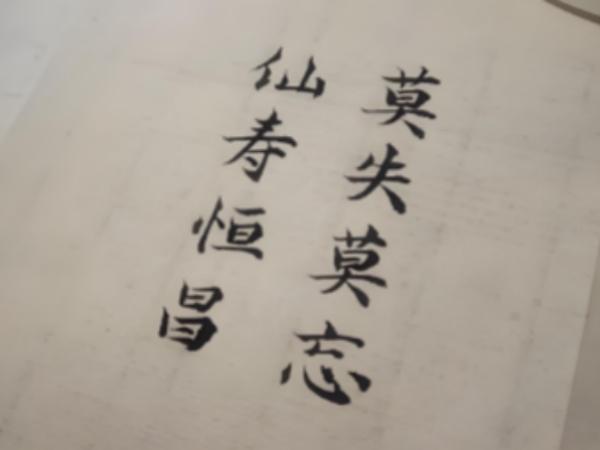 莫失莫忘
仙寿恒昌